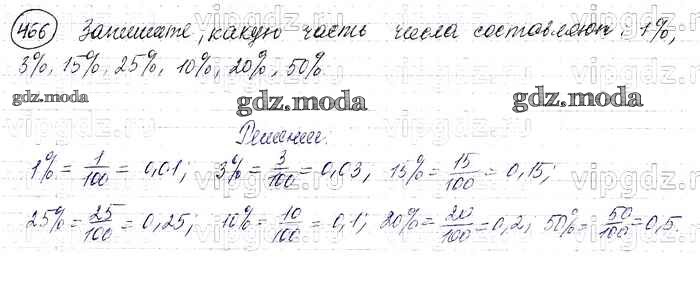 466 Запишите, какую часть числа составляют: 1%,
3%, 15%, 25%, 10%, 20%, 50%.
gdz.moda gdz.moda gdz.moda
Решение.
1% = 1/100 = 0,01; 3% = 3/100 = 0,03, 15% = 15/100 = 0,15;
25% = 25/100 = 0,25; 10% = 10/100 = 0,1; 20% = 20/100 = 0,2; 50% = 50/100 = 0,5.